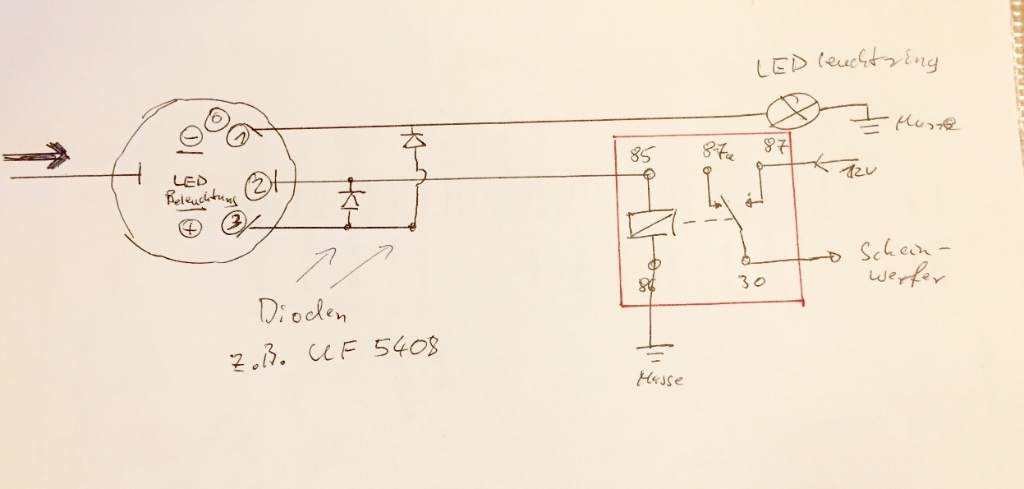 LED leuchtring
Masse
0
1
⊖
LED
Beleuchtung
2
⊕
3
85
87a
87
12V
86
30
Schein-
werfer
Masse
Dioden
z.B. UF 5408